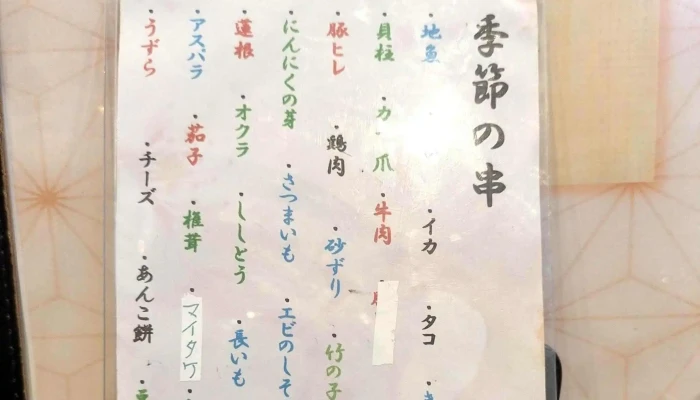 季節の串
・地魚 ・イカ ・タコ
・貝柱 ・カ 爪 ・牛肉
・豚ヒレ ・鶏肉 ・砂ずり ・竹の子
・にんにくの芽 ・さつまいも ・エビのしそ
・蓮根 ・オクラ ・ししとう ・長いも
・アスパラ ・茄子 ・椎茸 ・マイタケ
・うずら ・チーズ ・あんこ餅